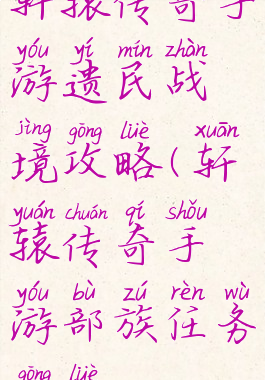 轩辕传奇手
yóu yí mín zhàn
游遗民战
jìng gōng lüè xuān
境攻略(轩
yuán chuán qí shǒu
辕传奇手
yóu bù zú rèn wù
游部族任务
gōng lüè